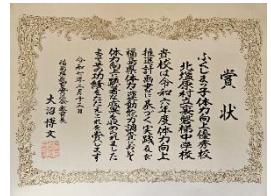 賞状
ふくしまっ子体力向上優秀校
北塩原村立裏磐梯中学校
貴校は令和六年度体力向上
推進計画書に基づく実践及び
福島県体力・運動能力調査において
体力向上に顕著な成果を収められました
よってその功績をたたえこれを賞します
令和七年二月十三日
福島県教育委員会教育長
大沼博文